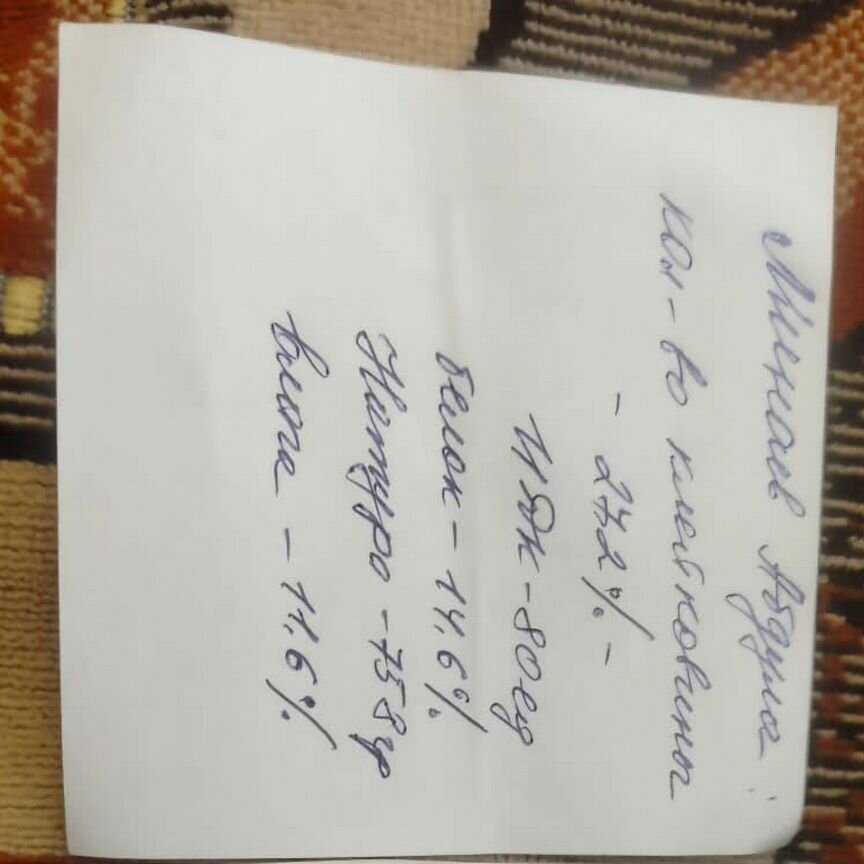 Абдула :
кол-во клейковины
- 272% -
ИДК - 80 ед
белок - 14,6%
Натура - 758 гр
влага - 11,6%